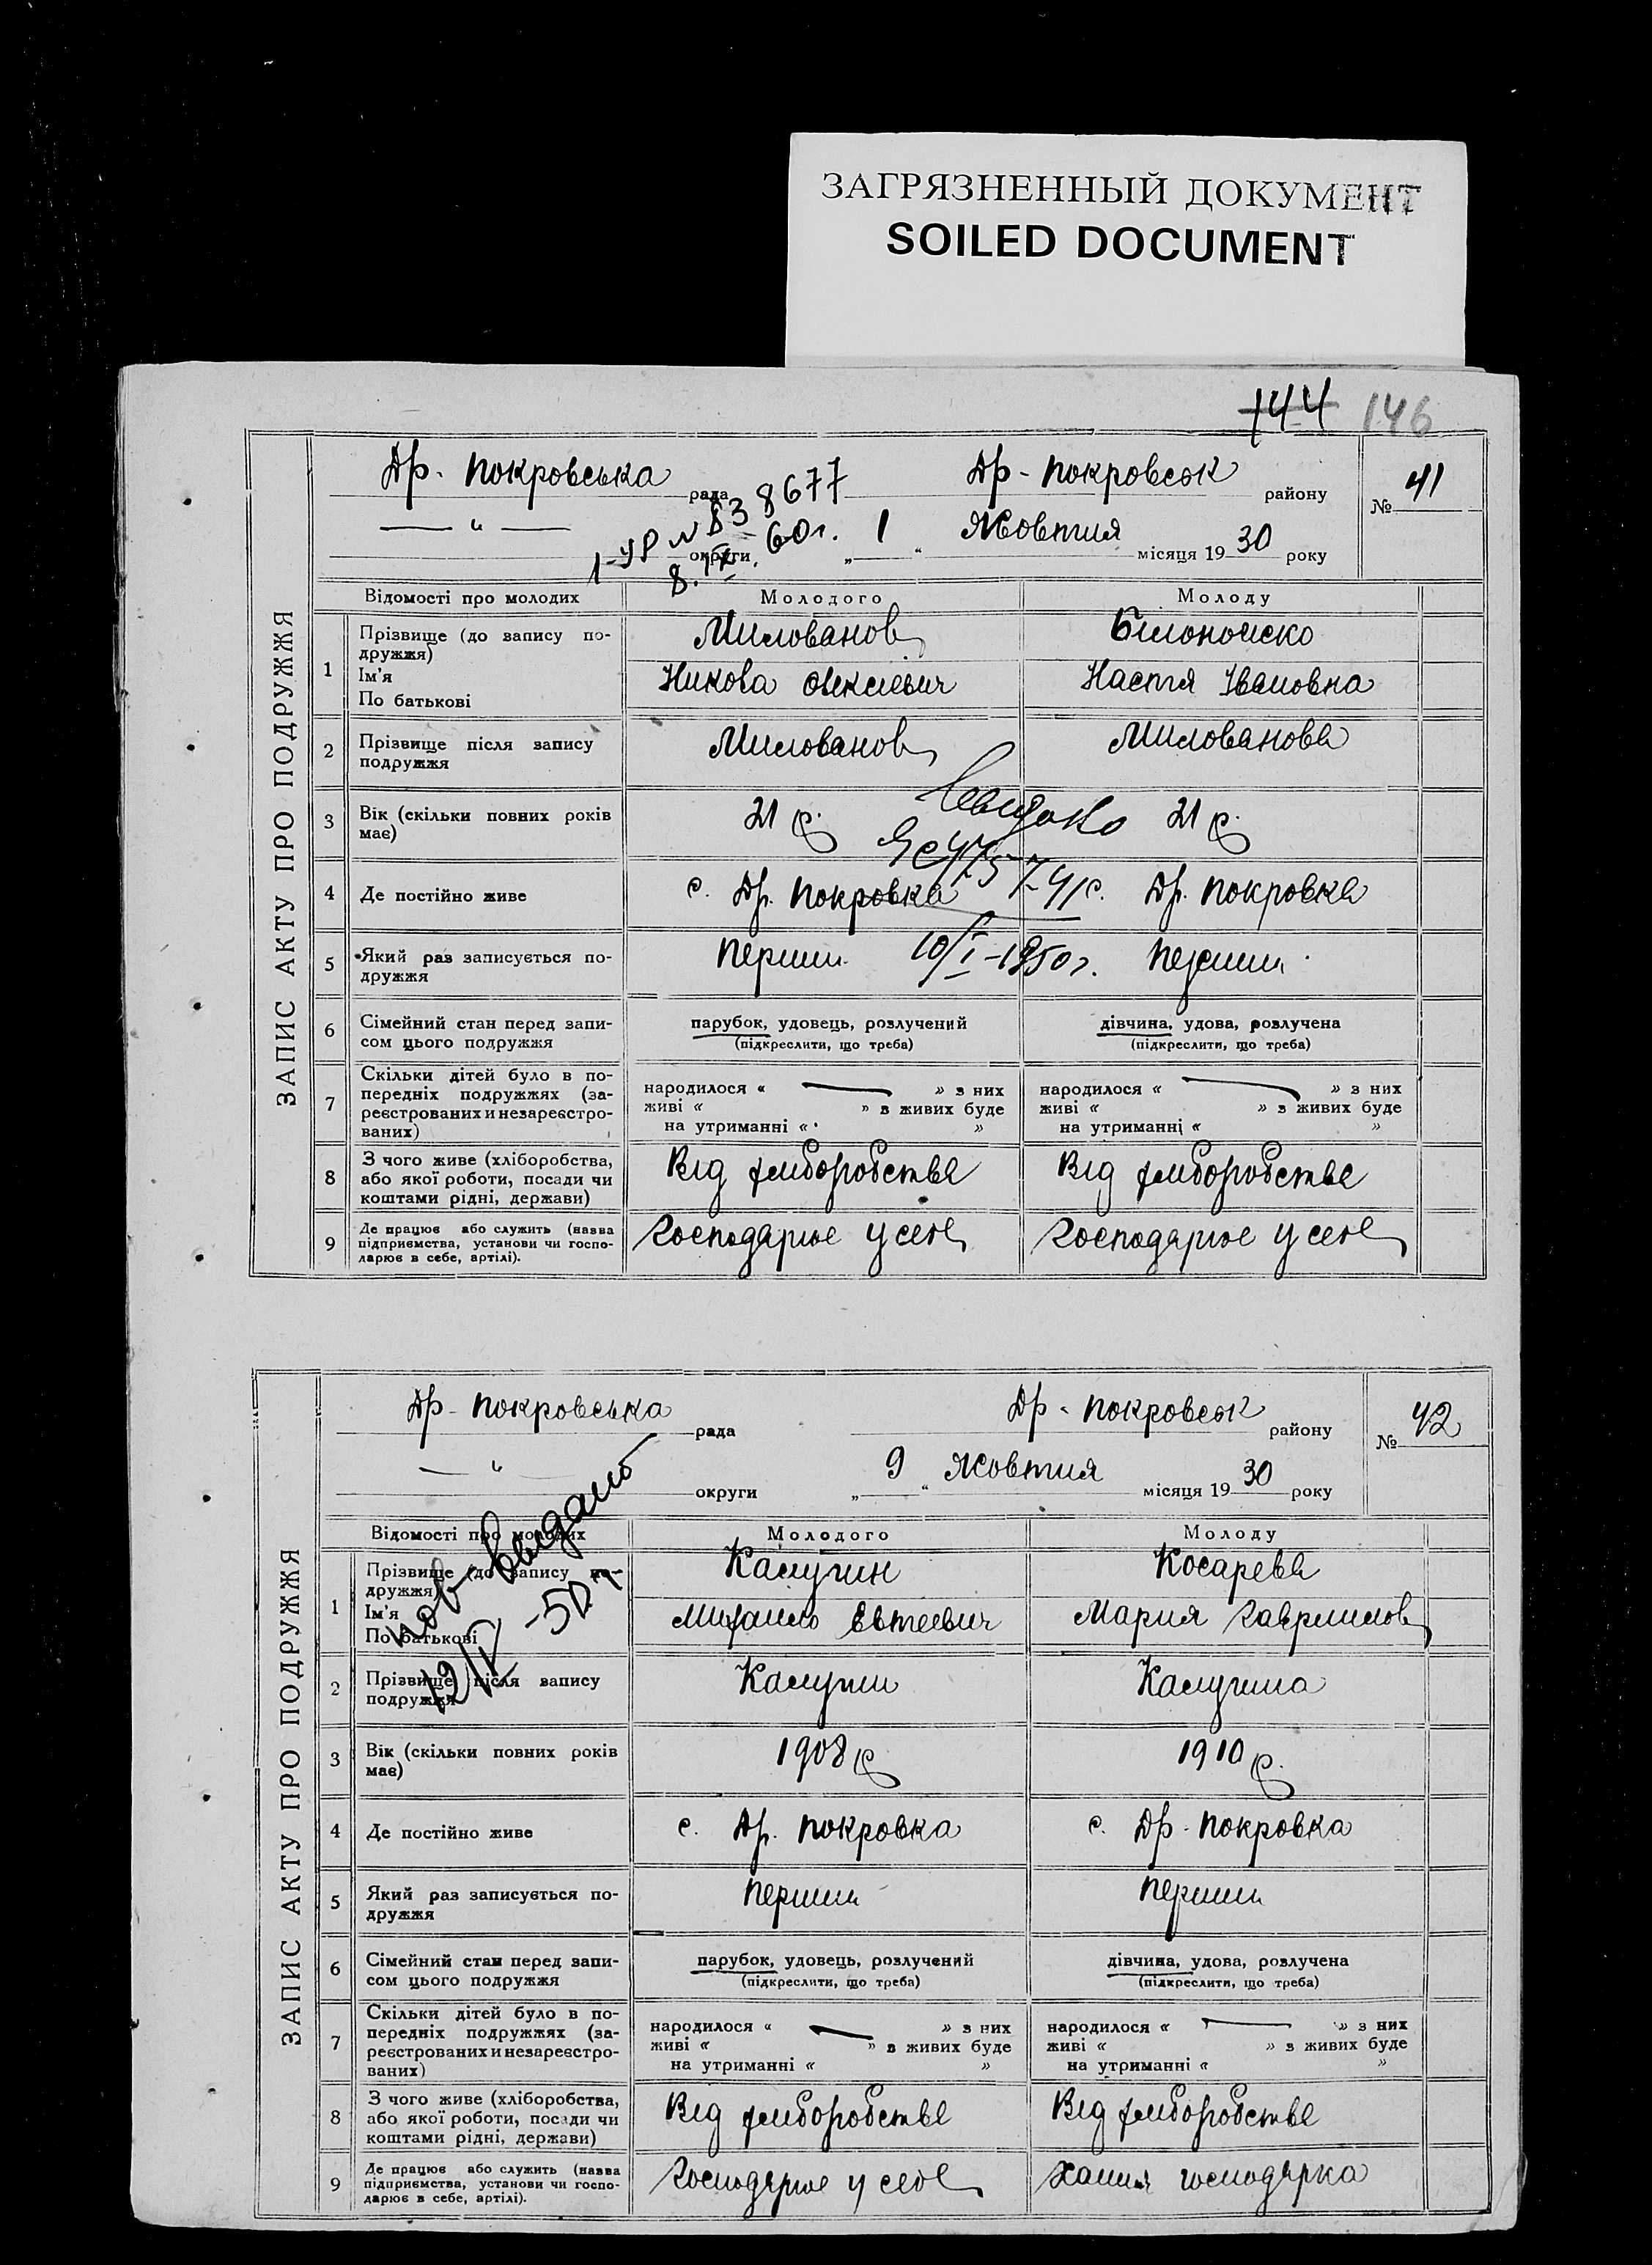 ЗАГРЯЗНЕННЫЙ ДОКУМЕНТ
SOILED DOCUMENT
144 146
ЗАПИС АКТУ ПРО ПОДРУЖЖЯ
Др. Покровська рада Др-Покровськ району № 41
— " — округи „ 1 “ Жовтня місяця 1930 року
8677
8.IX.60г.
Відомості про молодих Молодого Молоду
1 Прізвище (до запису по-
дружжя)
Милованов Білоножко
Ім'я
По батькові
Микола Олексієвич Настя Івановна
2 Прізвище після запису
подружжя
Милованов Милованова
3 Вік (скільки повних років
має)
21 р. 21 р.
4 Де постійно живе с. Др. Покровка с. Др. Покровка
5 Який раз записується по-
дружжя
Перший Перший
10/I-1950г.
6 Сімейний стан перед запи-
сом цього подружжя
парубок, удовець, розлучений
(підкреслити, що треба)
дівчина, удова, розлучена
(підкреслити, що треба)
7 Скільки дітей було в по-
передніх подружжях (за-
реєстрованих и незареєстро-
ваних)
народилося « — » з них
живі « » з живих буде
на утриманні « »
народилося « — » з них
живі « » з живих буде
на утриманні « »
8 З чого живе (хліборобства,
або якої роботи, посади чи
коштами рідні, держави)
Від хліборобства Від хліборобства
9 Де працює або служить (назва
підприємства, установи чи госпо-
дарює в себе, артілі).
Господарює у себе Господарює у себе
ЗАПИС АКТУ ПРО ПОДРУЖЖЯ
Др-Покровська рада Др-Покровськ району № 42
— " — округи „ 9 “ Жовтня місяця 1930 року
Відомості про молодих Молодого Молоду
1 Прізвище (до запису по-
дружжя)
Калугин Косарева
Ім'я
По батькові
Михайло Евтеевич Мария Гаврилов
2 Прізвище після запису
подружжя
Калугин Калугина
3 Вік (скільки повних років
має)
1908 р 1910 р.
4 Де постійно живе с. Др. Покровка с. Др. Покровка
5 Який раз записується по-
дружжя
Перший Перший
6 Сімейний стан перед запи-
сом цього подружжя
парубок, удовець, розлучений
(підкреслити, що треба)
дівчина, удова, розлучена
(підкреслити, що треба)
7 Скільки дітей було в по-
передніх подружжях (за-
реєстрованих и незареєстро-
ваних)
народилося « — » з них
живі « » з живих буде
на утриманні « »
народилося « — » з них
живі « » з живих буде
на утриманні « »
8 З чого живе (хліборобства,
або якої роботи, посади чи
коштами рідні, держави)
Від хліборобства Від хліборобства
9 Де працює або служить (назва
підприємства, установи чи госпо-
дарює в себе, артілі).
Господарює у себе Хатня господарка